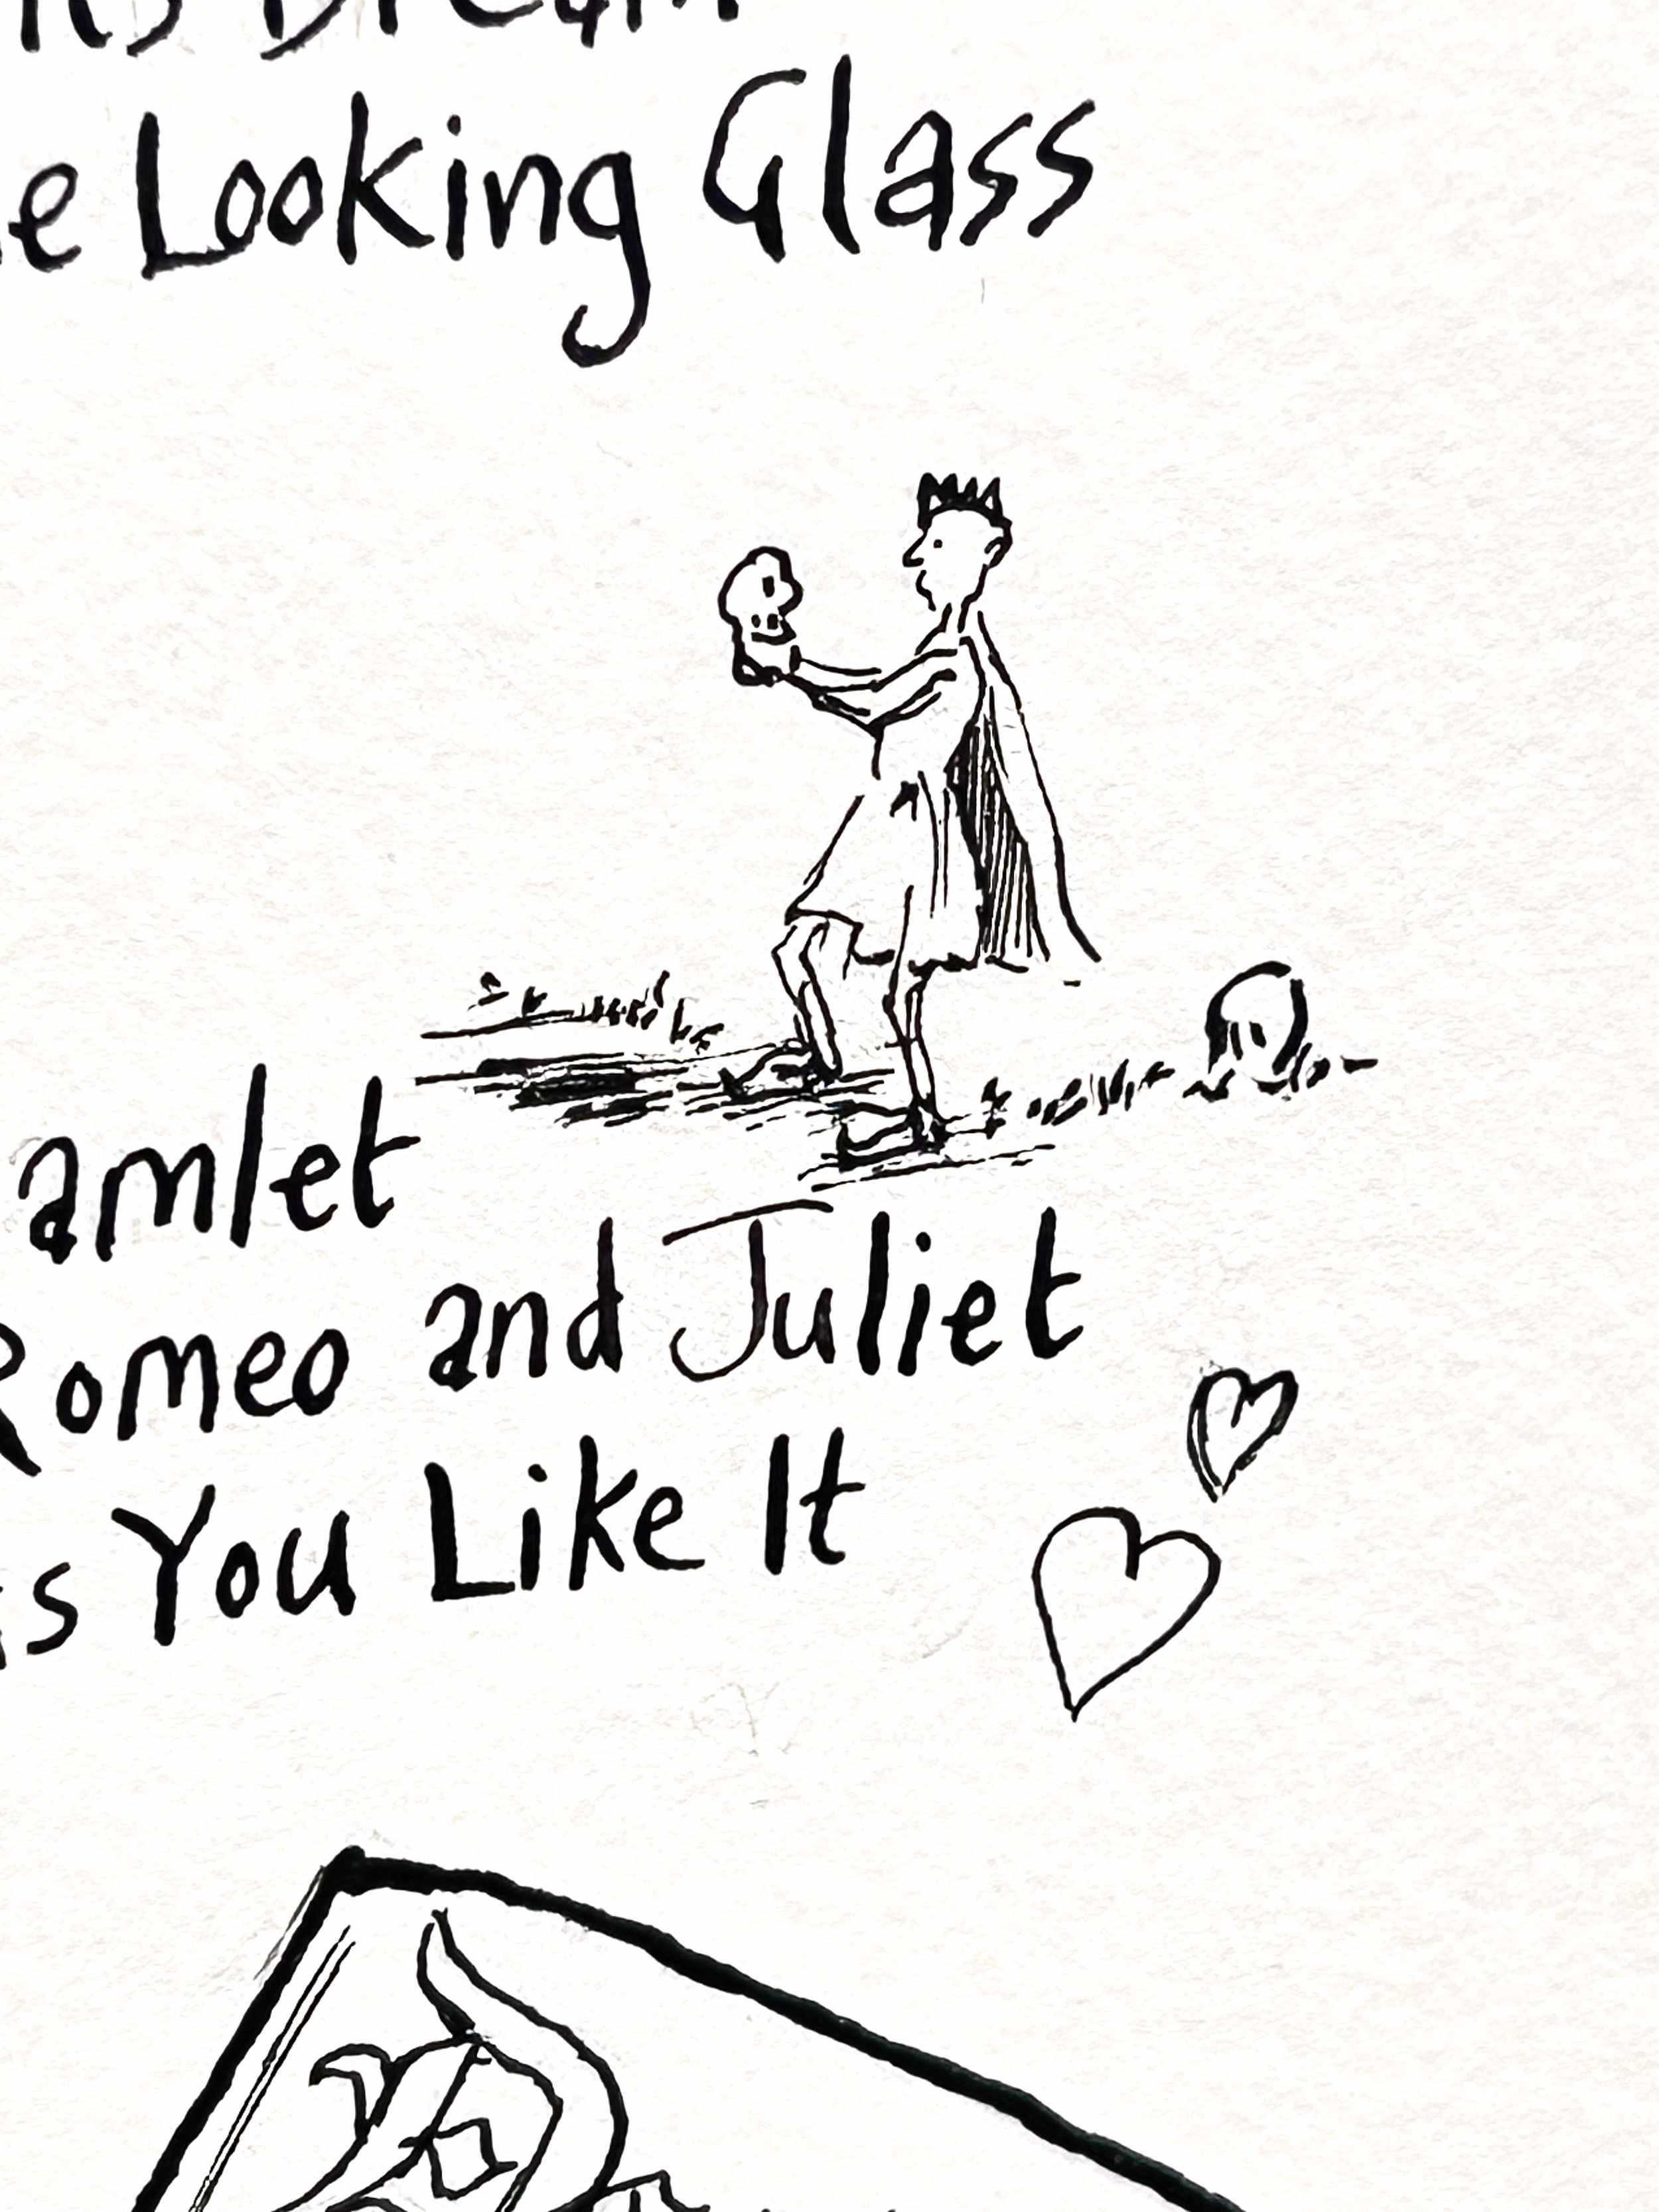 Dream
Looking Glass
amlet
Romeo and Juliet
s You Like It